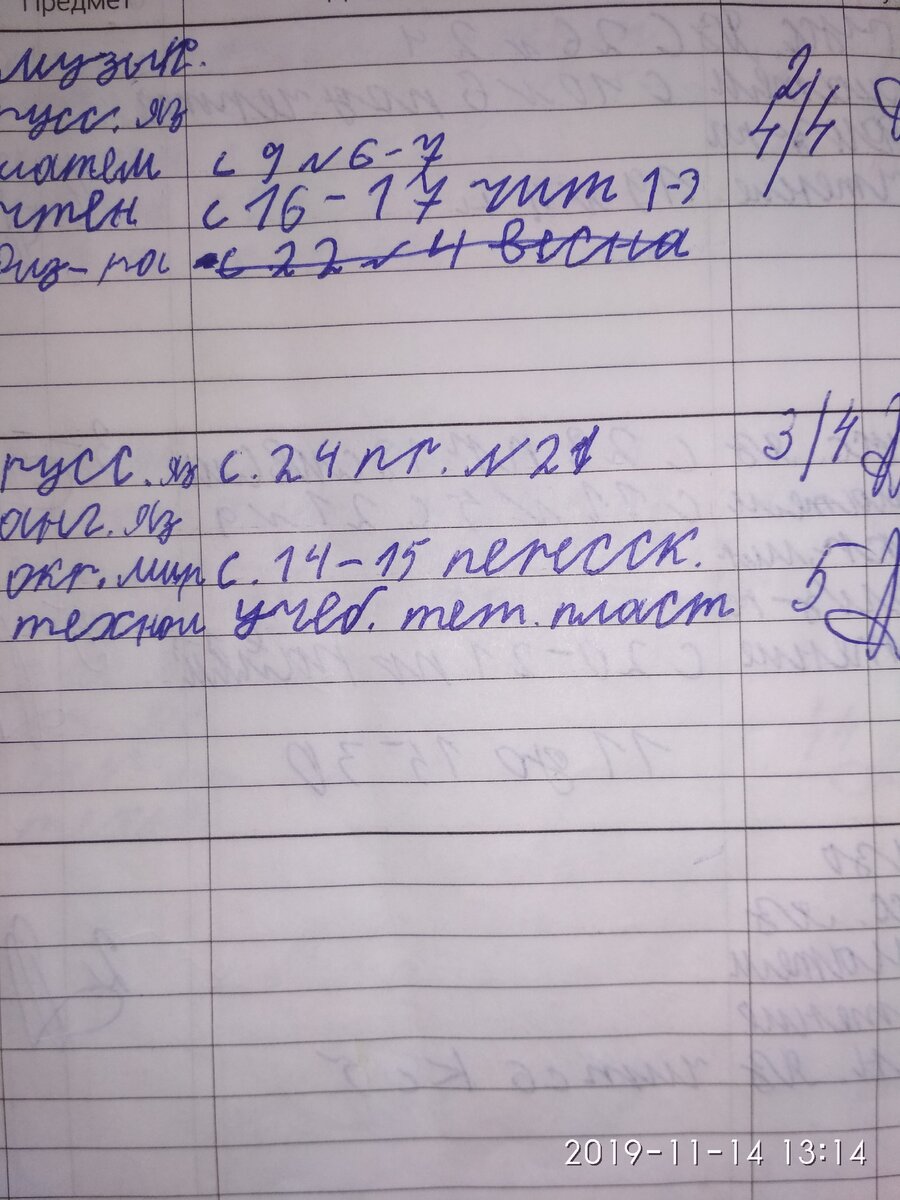 Предмет
музык.
русс. яз
2
4/4
матем с 9 № 6-7
чтен с 16-17 чит 1-3
физ-ра с 22 № 4 весна
русс. яз с. 24 пр. № 21 3/4
анг. яз
окр. мир с. 14-15 пересск.
технол учеб. тет. пласт 5
2019-11-14 13:14